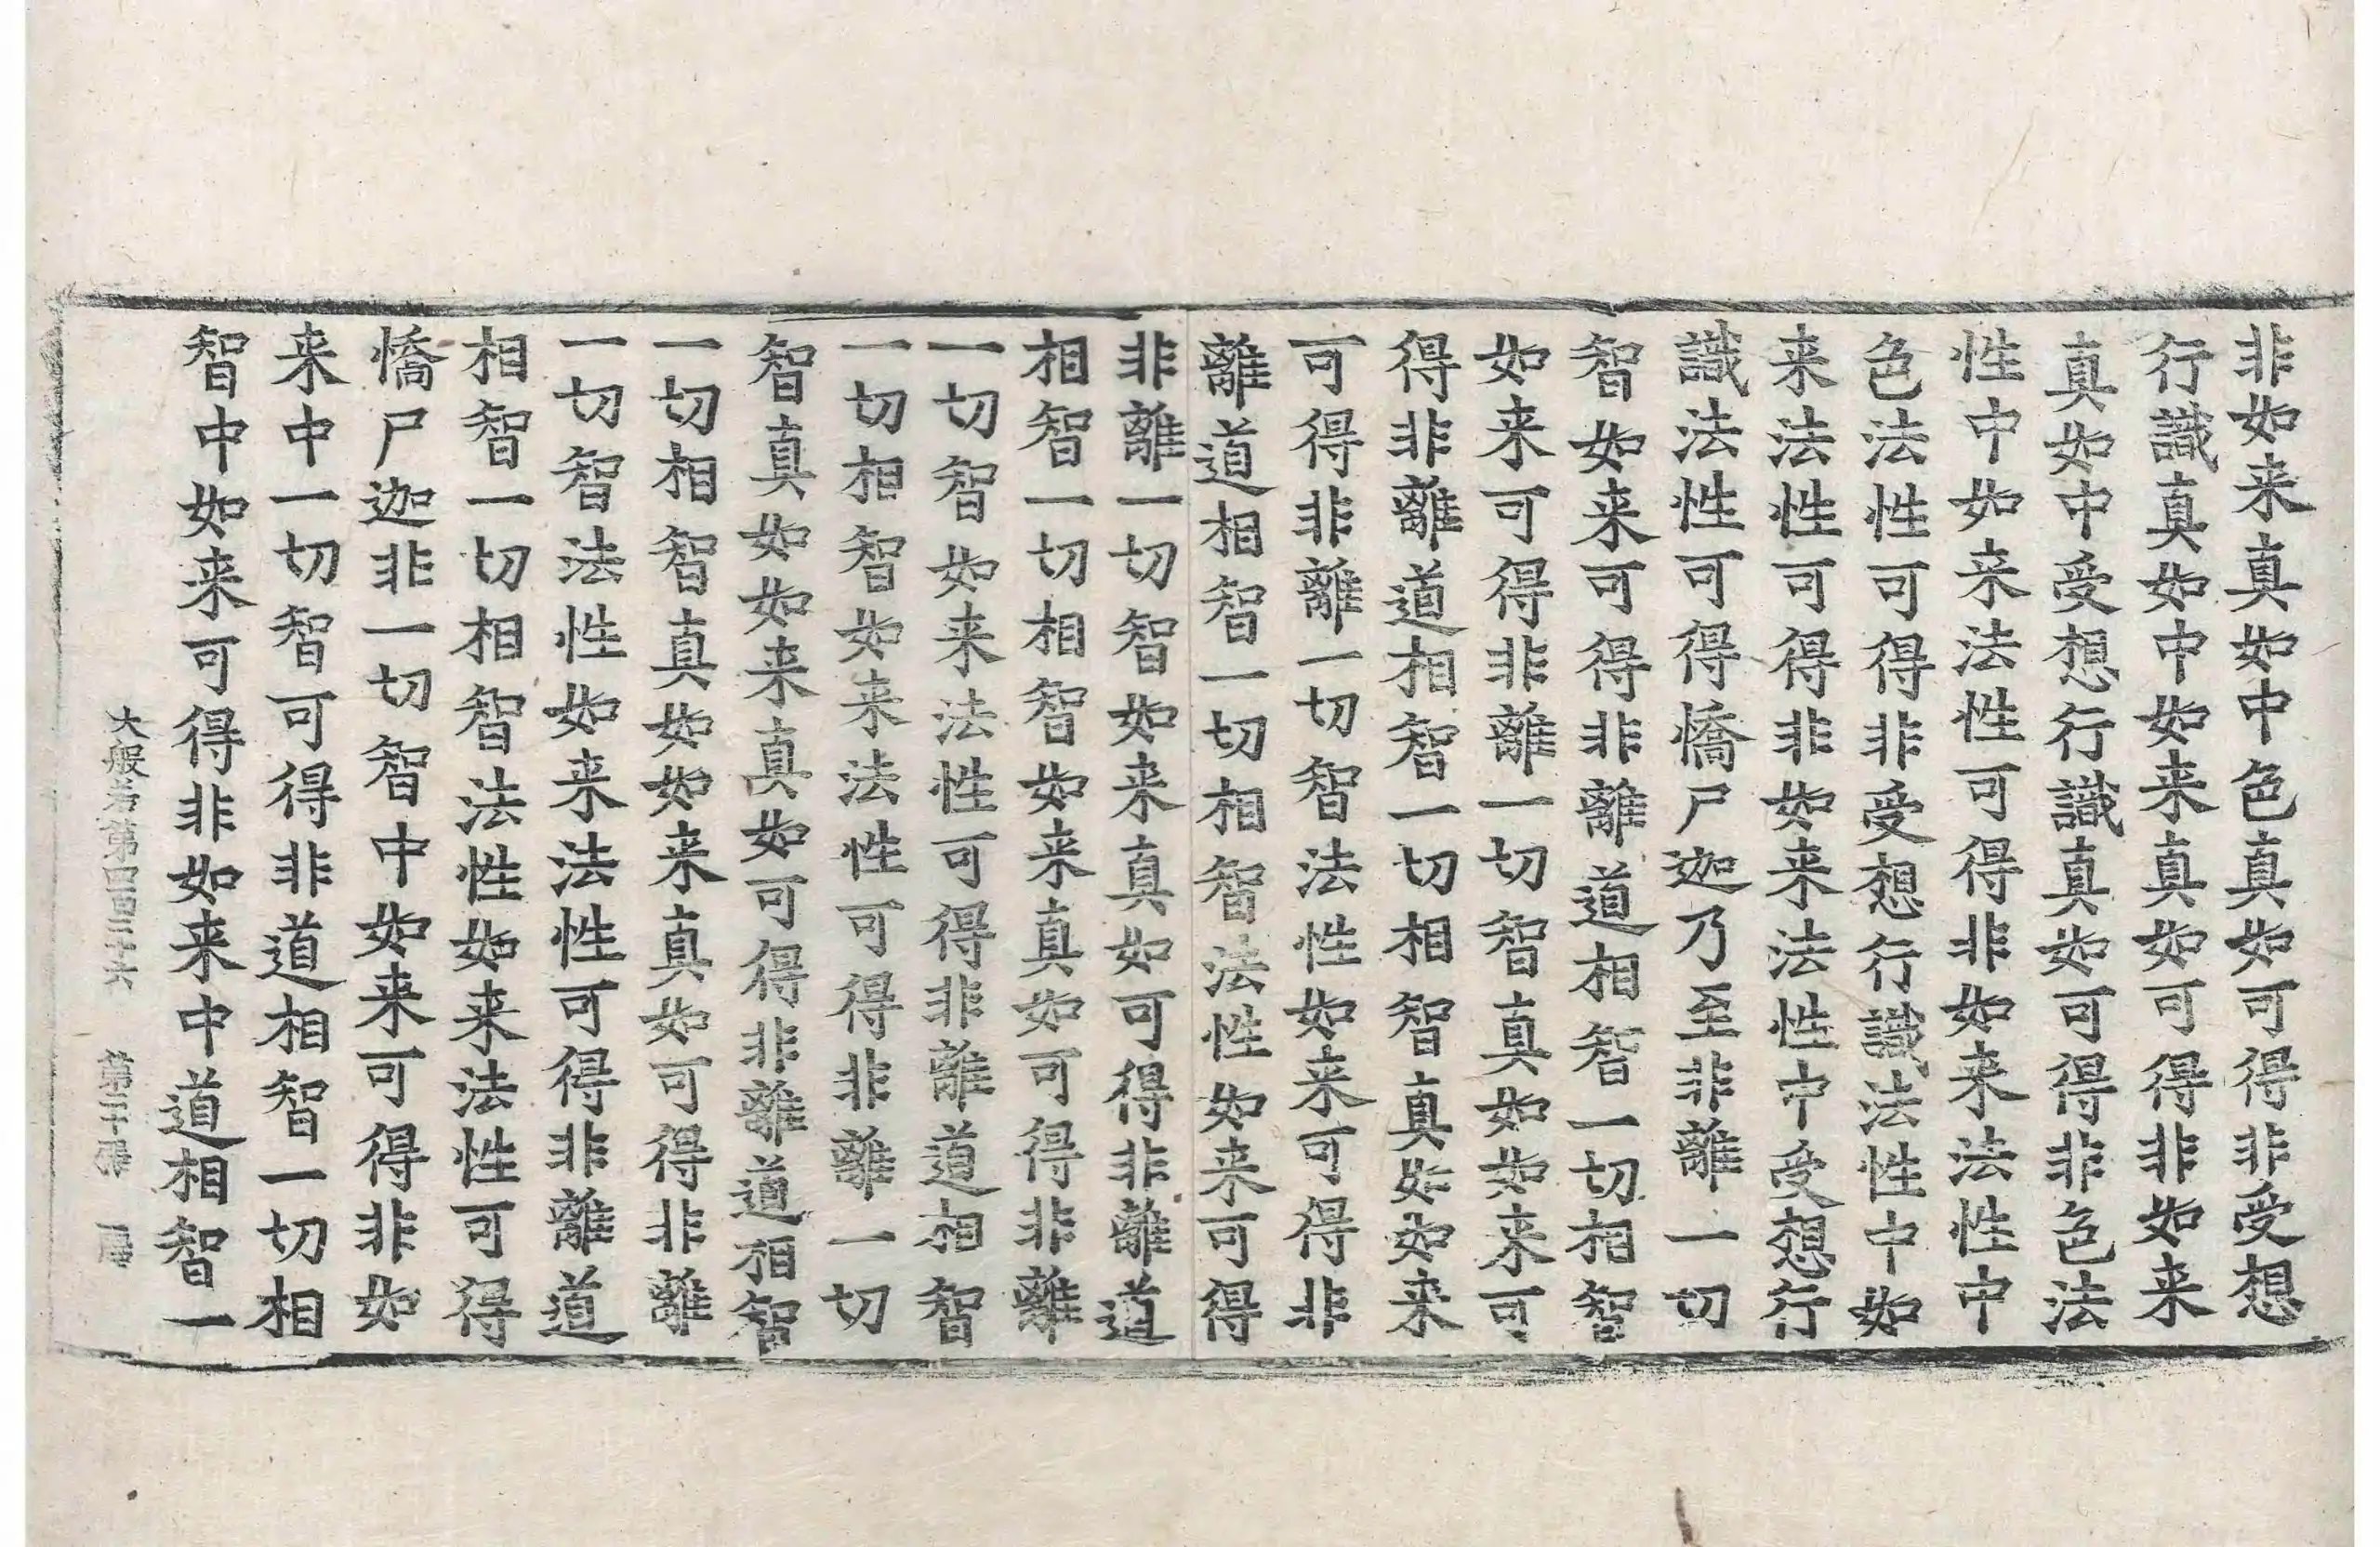 非如来真如中色真如可得非受想
行識真如中如来真如可得非如来
真如中受想行識真如可得非色法
性中如来法性可得非如来法性中
色法性可得非受想行識法性中如
来法性可得非如来法性中受想行
識法性可得憍尸迦乃至非離一切
智如来可得非離道相智一切相智
如来可得非離一切智真如如来可
得非離道相智一切相智真如如来
可得非離一切智法性如来可得非
離道相智一切相智法性如来可得
非離一切智如来真如可得非離道
相智一切相智如来真如可得非離
一切智如来法性可得非離道相智
一切相智如来法性可得非離一切
智真如如来真如可得非離道相智
一切相智真如如来真如可得非離
一切智法性如来法性可得非離道
相智一切相智法性如来法性可得
憍尸迦非一切智中如来可得非如
来中一切智可得非道相智一切相
智中如来可得非如来中道相智一
大般若第四百二十六 第二十張